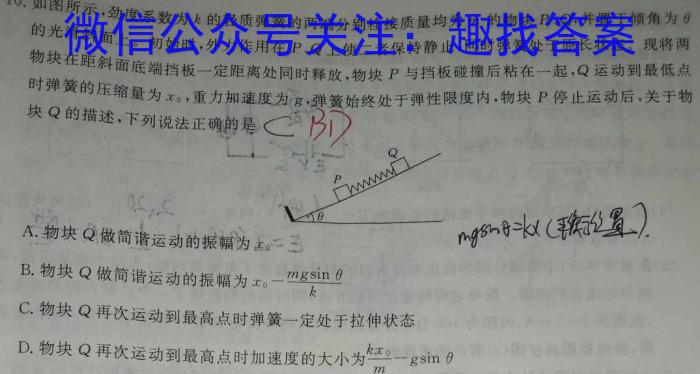 10. 如图所示,劲度系数为 k 的轻质弹簧的两端分别拴接质量均为 m 的物块 P、Q
倾角为 θ
微信公众号关注：趣找答案
的光滑 现将两
物块在距斜面底端挡板一定距离处同时释放,物块 P 与挡板碰撞后粘在一起,Q 运动到最低点
时弹簧的压缩量为 x₀,重力加速度为 g,弹簧始终处于弹性限度内,物块 P 停止运动后,关于物
块 Q 的描述,下列说法正确的是 C BD
Q
P
θ
mgsinθ=kx (平衡位置).
A. 物块 Q 做简谐运动的振幅为 x₀
B. 物块 Q 做简谐运动的振幅为 x₀ − mgsin θ / k
C. 物块 Q 再次运动到最高点时弹簧一定处于拉伸状态
D. 物块 Q 再次运动到最高点时加速度的大小为 kx₀ / m − gsin θ